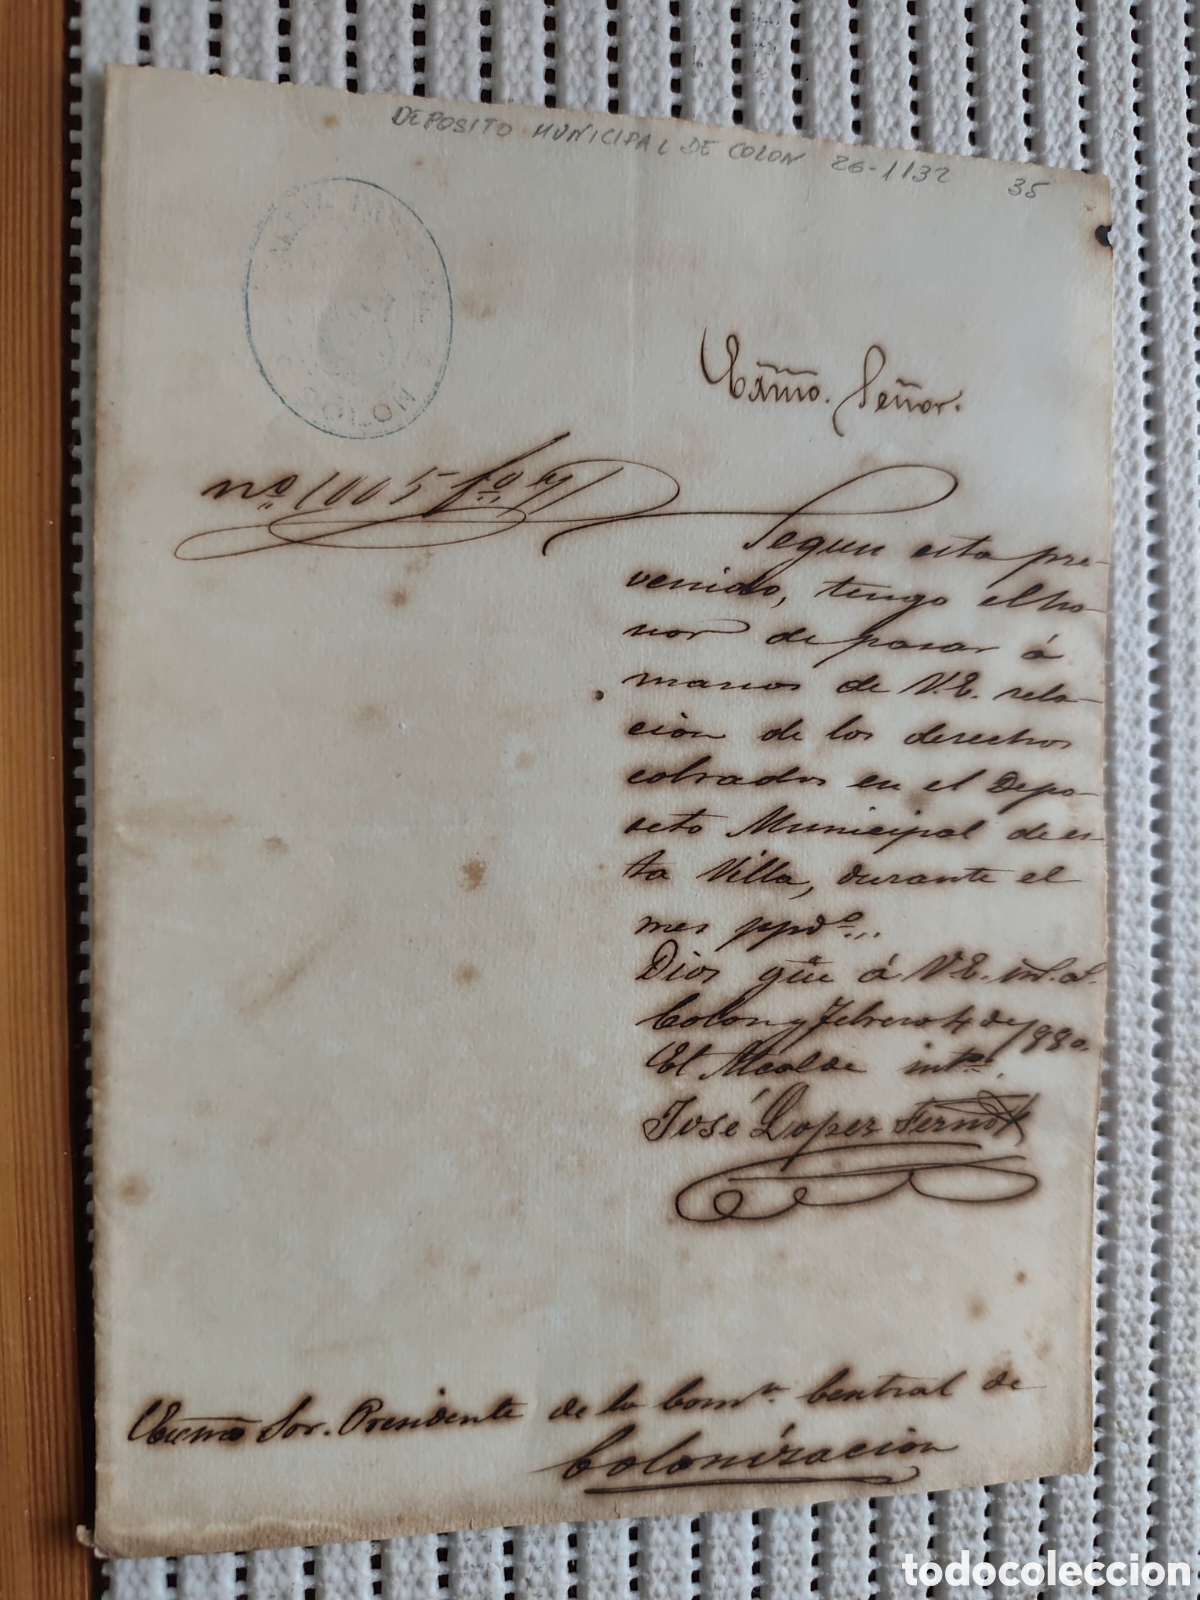 DEPOSITO MUNICIPAL DE COLON 26-1132 35
COLON
Exmo. Señor.
nº 1005 fo 91
Segun esta pre-
venido, tengo el ho-
nor de pasar á
manos de V.E. rela-
cion de los derechos
cobrados en el Depo-
seto Municipal de es-
ta Villa, durante el
mes ppdo...
Dios güe á V.E. m. a.
Colon y Febrero 4 de 1880.
El Alcalde into.
José Lopez Ferndz
Excmo Sor. Presidente de la Comon. Central de
Colonizacion
todocoleccion